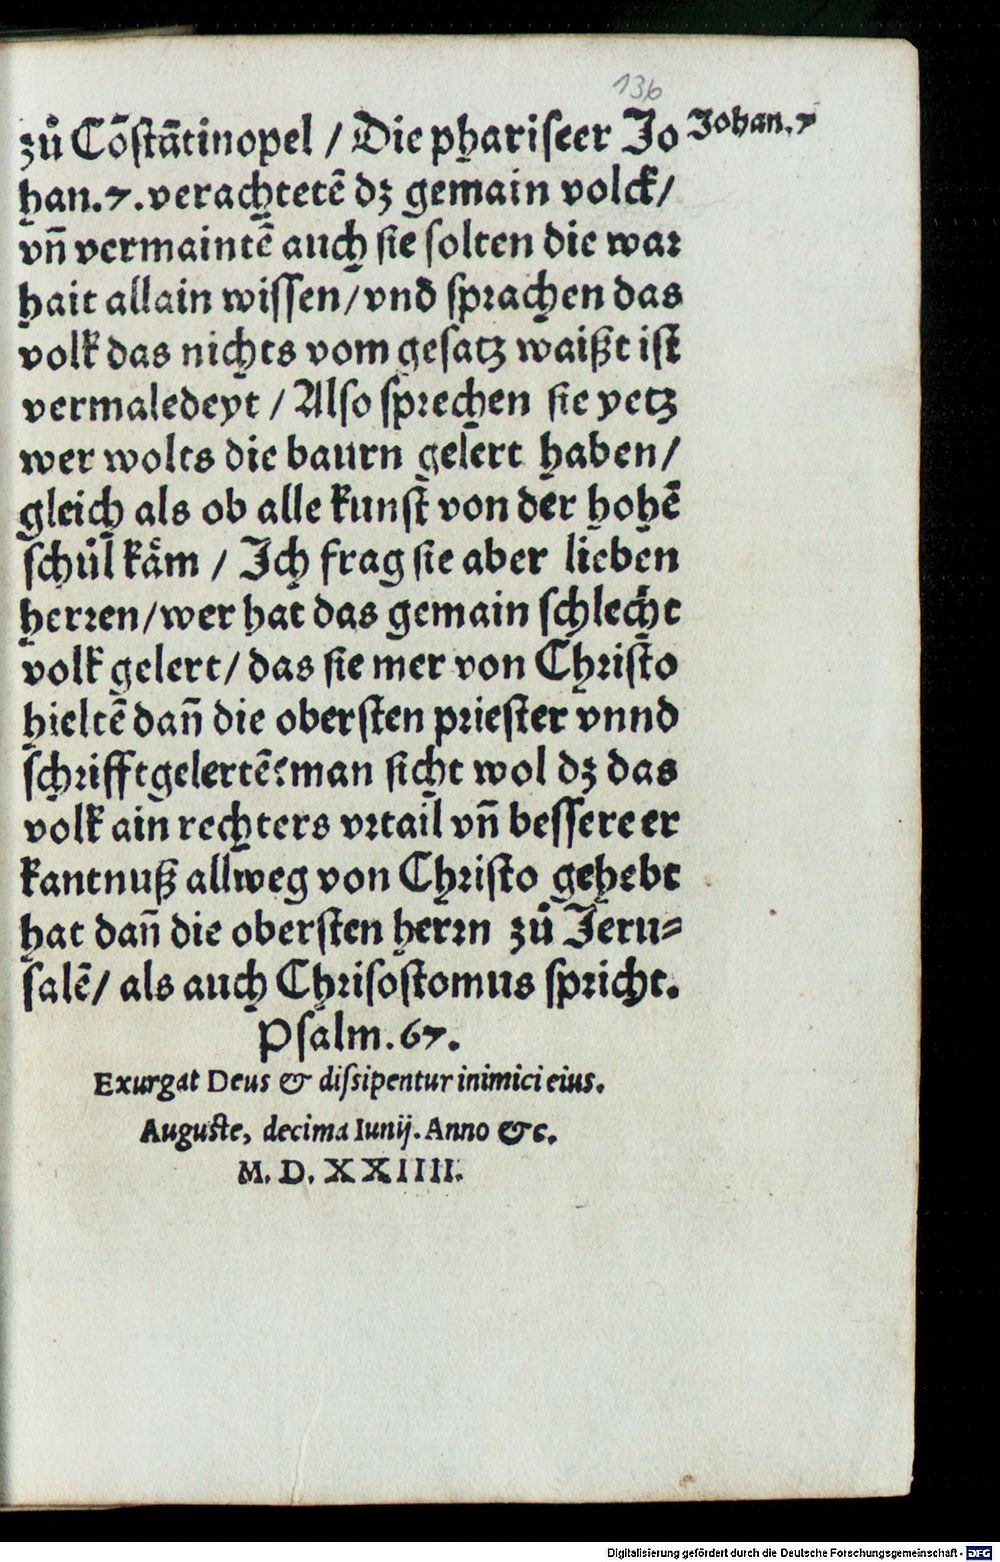 136
zů Cōstātinopel / Die phariseer Jo
Johan. 7
han. 7. verachtetē dz gemain volck/
vn̄ vermaintē auch sie solten die war
hait allain wissen/vnd sprachen das
volk das nichts vom gesatz waißt ist
vermaledeyt / Also sprechen sie yetz
wer wolts die baurn gelert haben/
gleich als ob alle kunst von der hohē
schůl käm / Jch frag sie aber lieben
herren/wer hat das gemain schlecht
volk gelert/ das sie mer von Christo
hieltē dan̄ die obersten priester vnnd
schrifftgelertē? man sicht wol dz das
volk ain rechters vrtail vn̄ bessere er
kantnuß allweg von Christo gehebt
hat dan̄ die obersten herrn zů Jeru⸗
salē/ als auch Chrisostomus spricht.
Psalm. 67.
Exurgat Deus & dissipentur inimici eius.
Auguste, decima Iunij. Anno &c.
M. D. XXIIII.
Digitalisierung gefördert durch die Deutsche Forschungsgemeinschaft - DFG